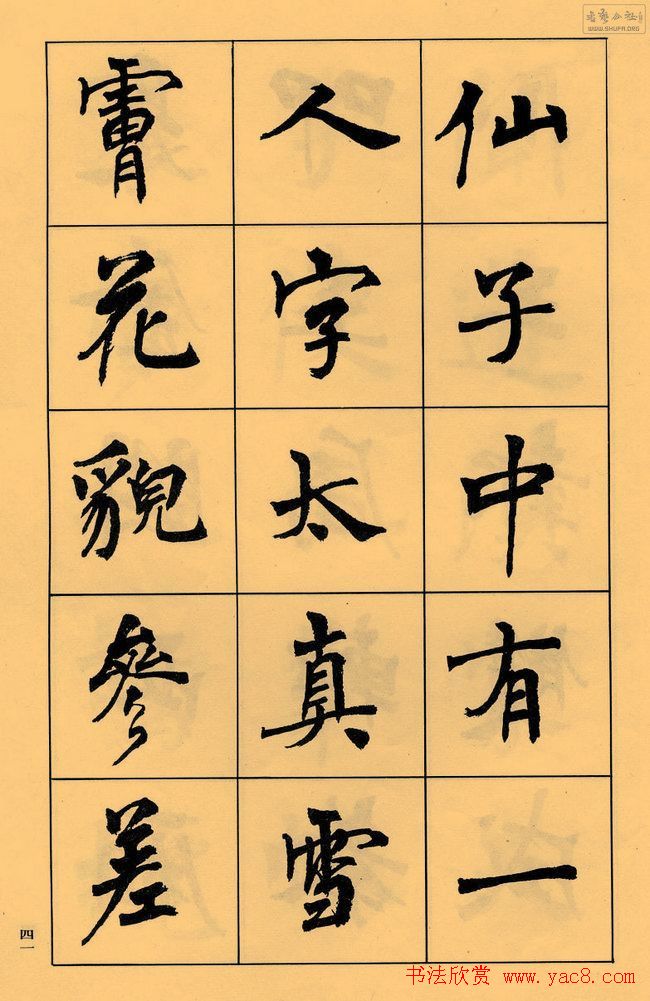 WWW.SHUFA.ORG
仙子中有一
人字太真雪
膚花貌參差
四一
书法欣赏 www.yac8.com